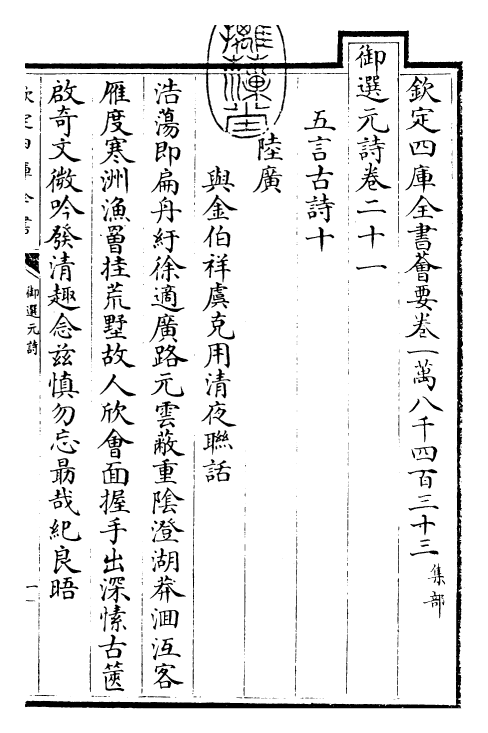 欽定四庫全書薈要卷一萬八千四百三十三 集部
御選元詩卷二十一
五言古詩十
陸廣
與金伯祥虞克用清夜聯話
浩蕩即扁舟紆徐適廣路元雲蔽重陰澄湖莽洄沍客
雁度寒洲漁罾挂荒墅故人欣會面握手出深愫古篋
啟奇文微吟發清趣念兹慎勿忘勗哉紀良晤
欽定四庫全書
御選元詩
一